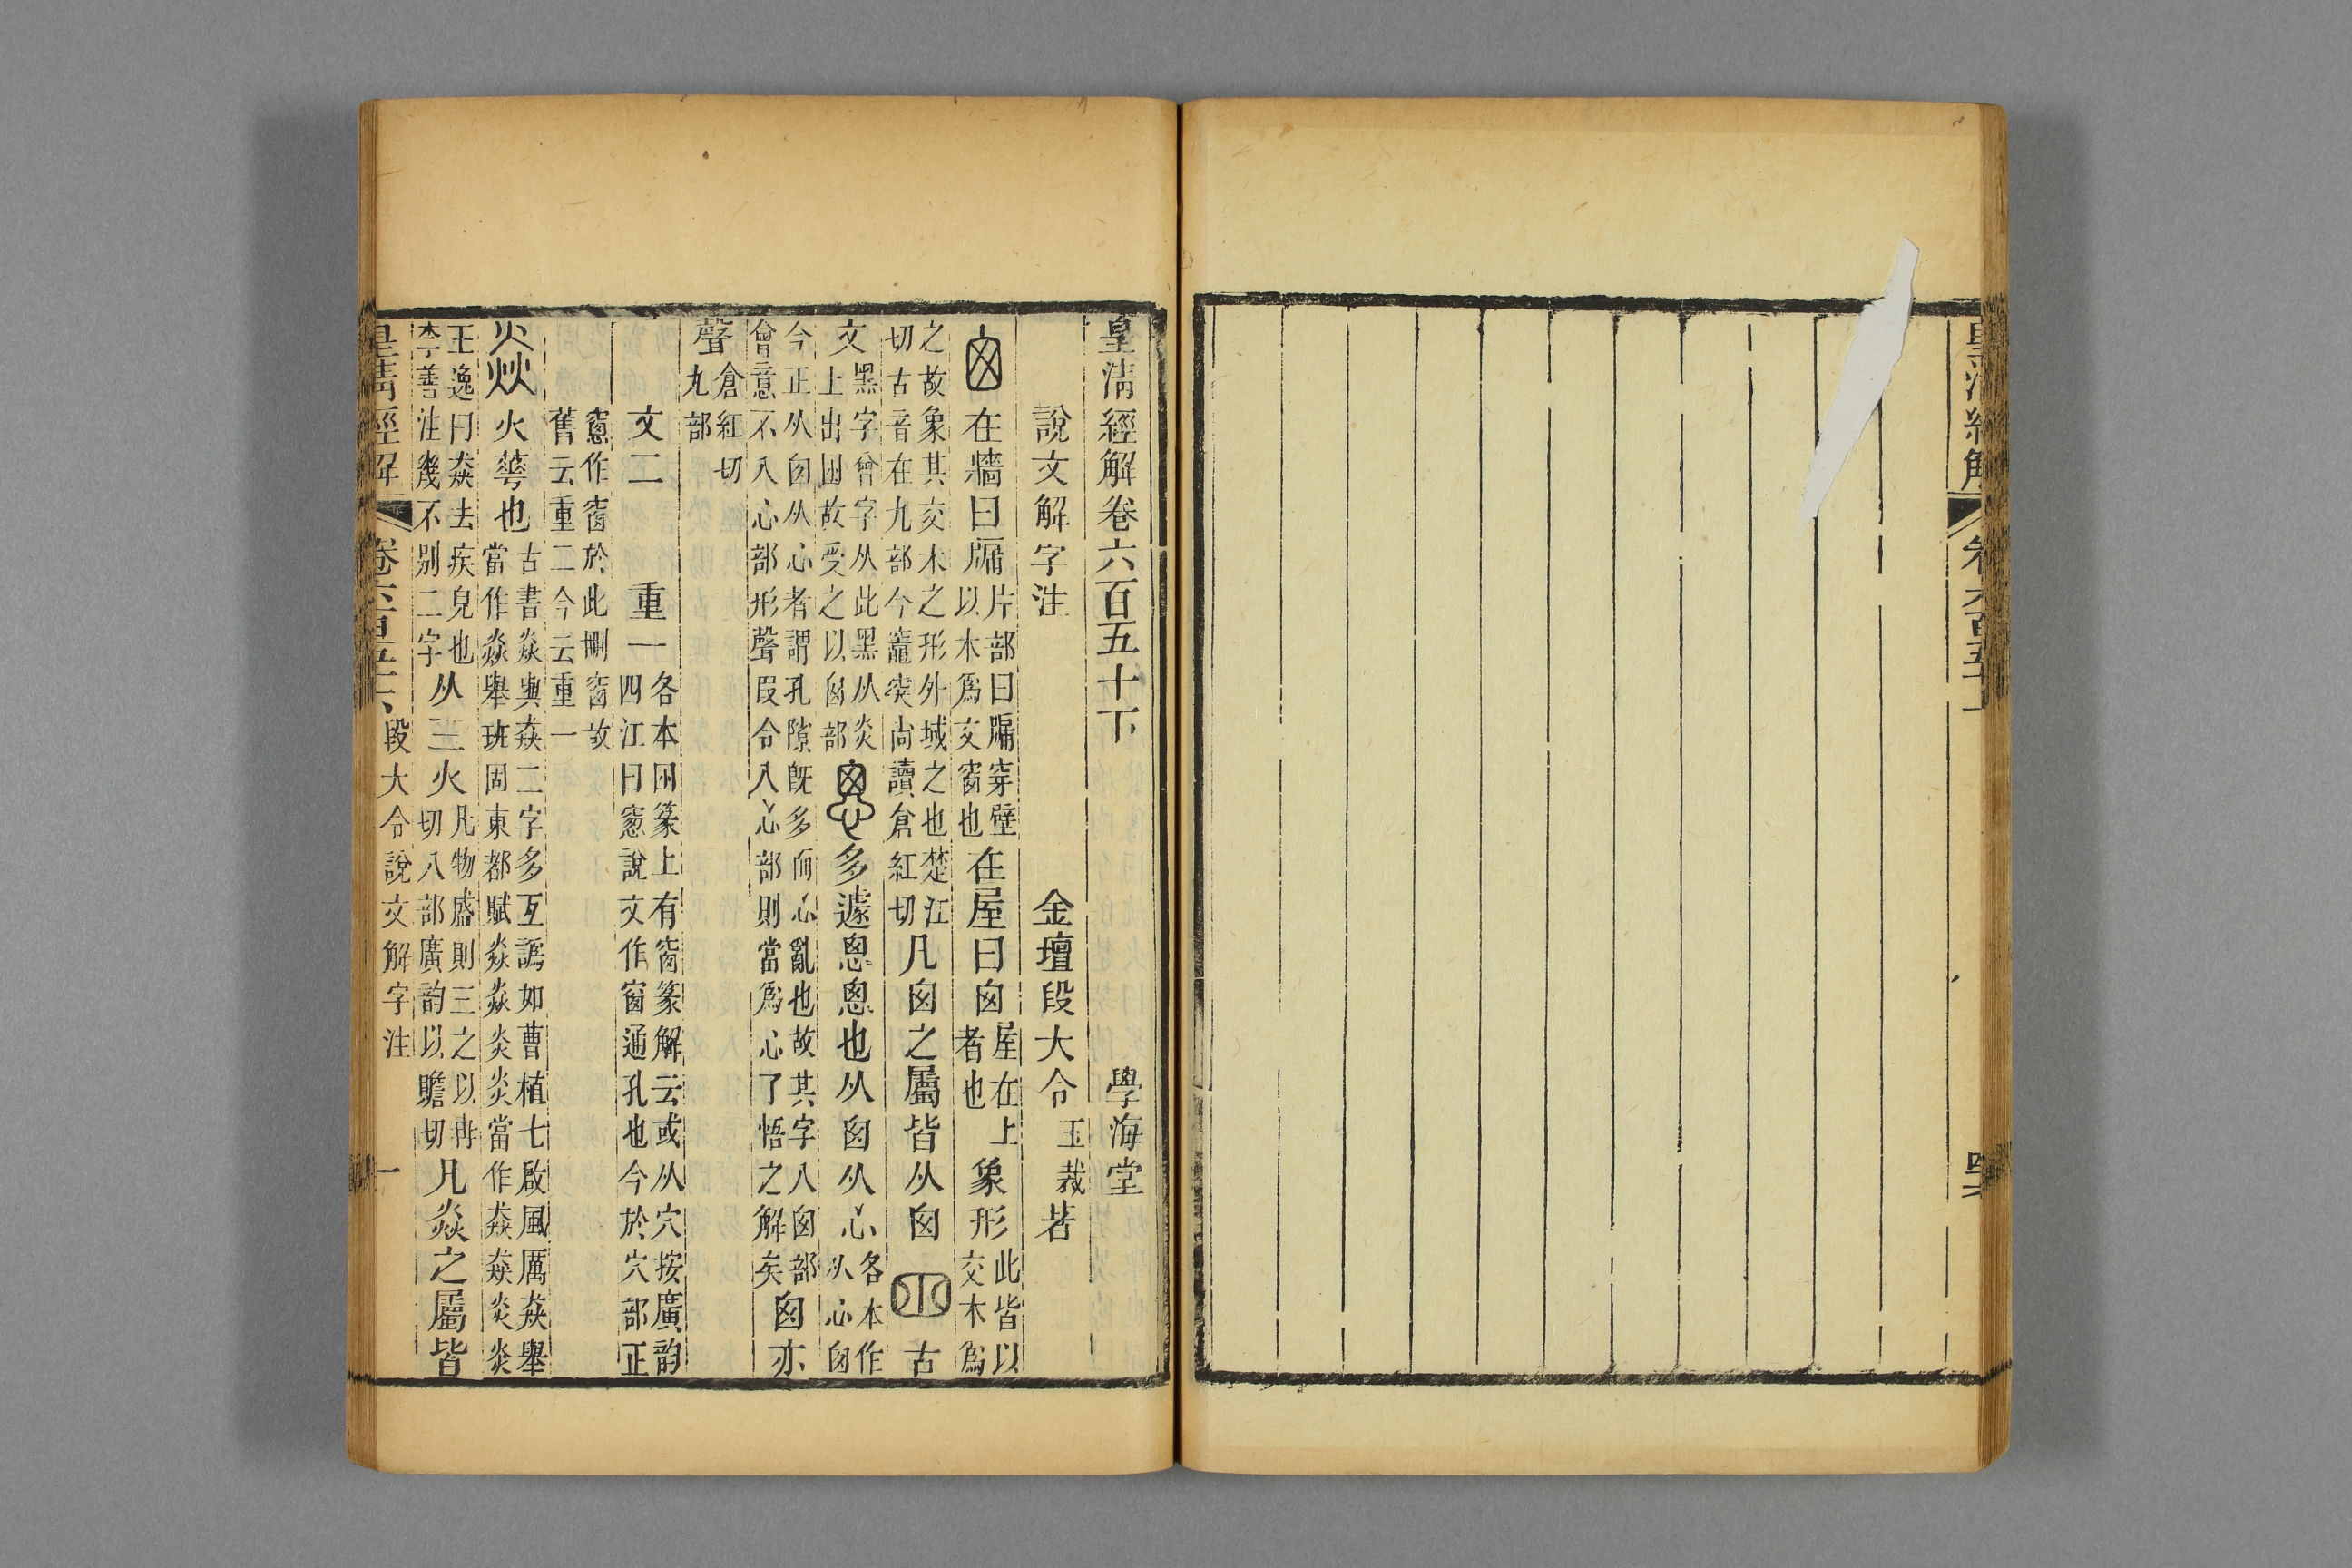 皇清經解 卷六百五十
皇清經解卷六百五十下　學海堂
說文解字注　金壇段大令玉裁著
囪在牆曰牖片部曰牖穿壁以木爲交窗也在屋曰囪屋在上者也象形此皆以交木爲
之故象其交木之形外域之也楚江切古音在九部今竈突尚讀倉紅切凡囪之屬皆从囪古
文黑字曾字从此黑从炎上出囪故受之以囪部悤多遽悤悤也从囪从心各本作从心囪
今正从囪从心者謂孔隙旣多而心亂也故其字入囪部會意不入心部形聲叚令入心部則當爲心了悟之解矣囪亦
聲倉紅切九部
文二　重一各本囪篆上有窗篆解云或从穴按廣韵四江曰窻說文作窗通孔也今於穴部正
窻作窗於此刪窗故舊云重二今云重一
焱火蕐也古書焱與猋二字多互譌如曹植七啟風厲猋舉當作焱舉班固東都賦焱焱炎炎當作猋猋炎炎
王逸曰猋去疾皃也李善注幾不别二字从三火凡物盛則三之以冉切八部廣韵以贍切凡焱之屬皆
皇清經解 卷六百五十下 段大令說文解字注 一